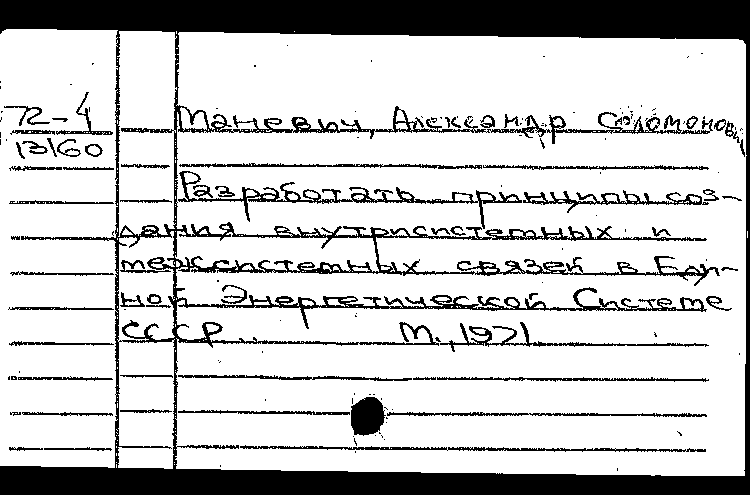 72-4
13160
Маневич, Александр Соломонович
Разработать принципы соз-
дания внутрисистемных и
межсистемных связей в Еди-
ной Энергетической Системе
СССР.. М., 1971.